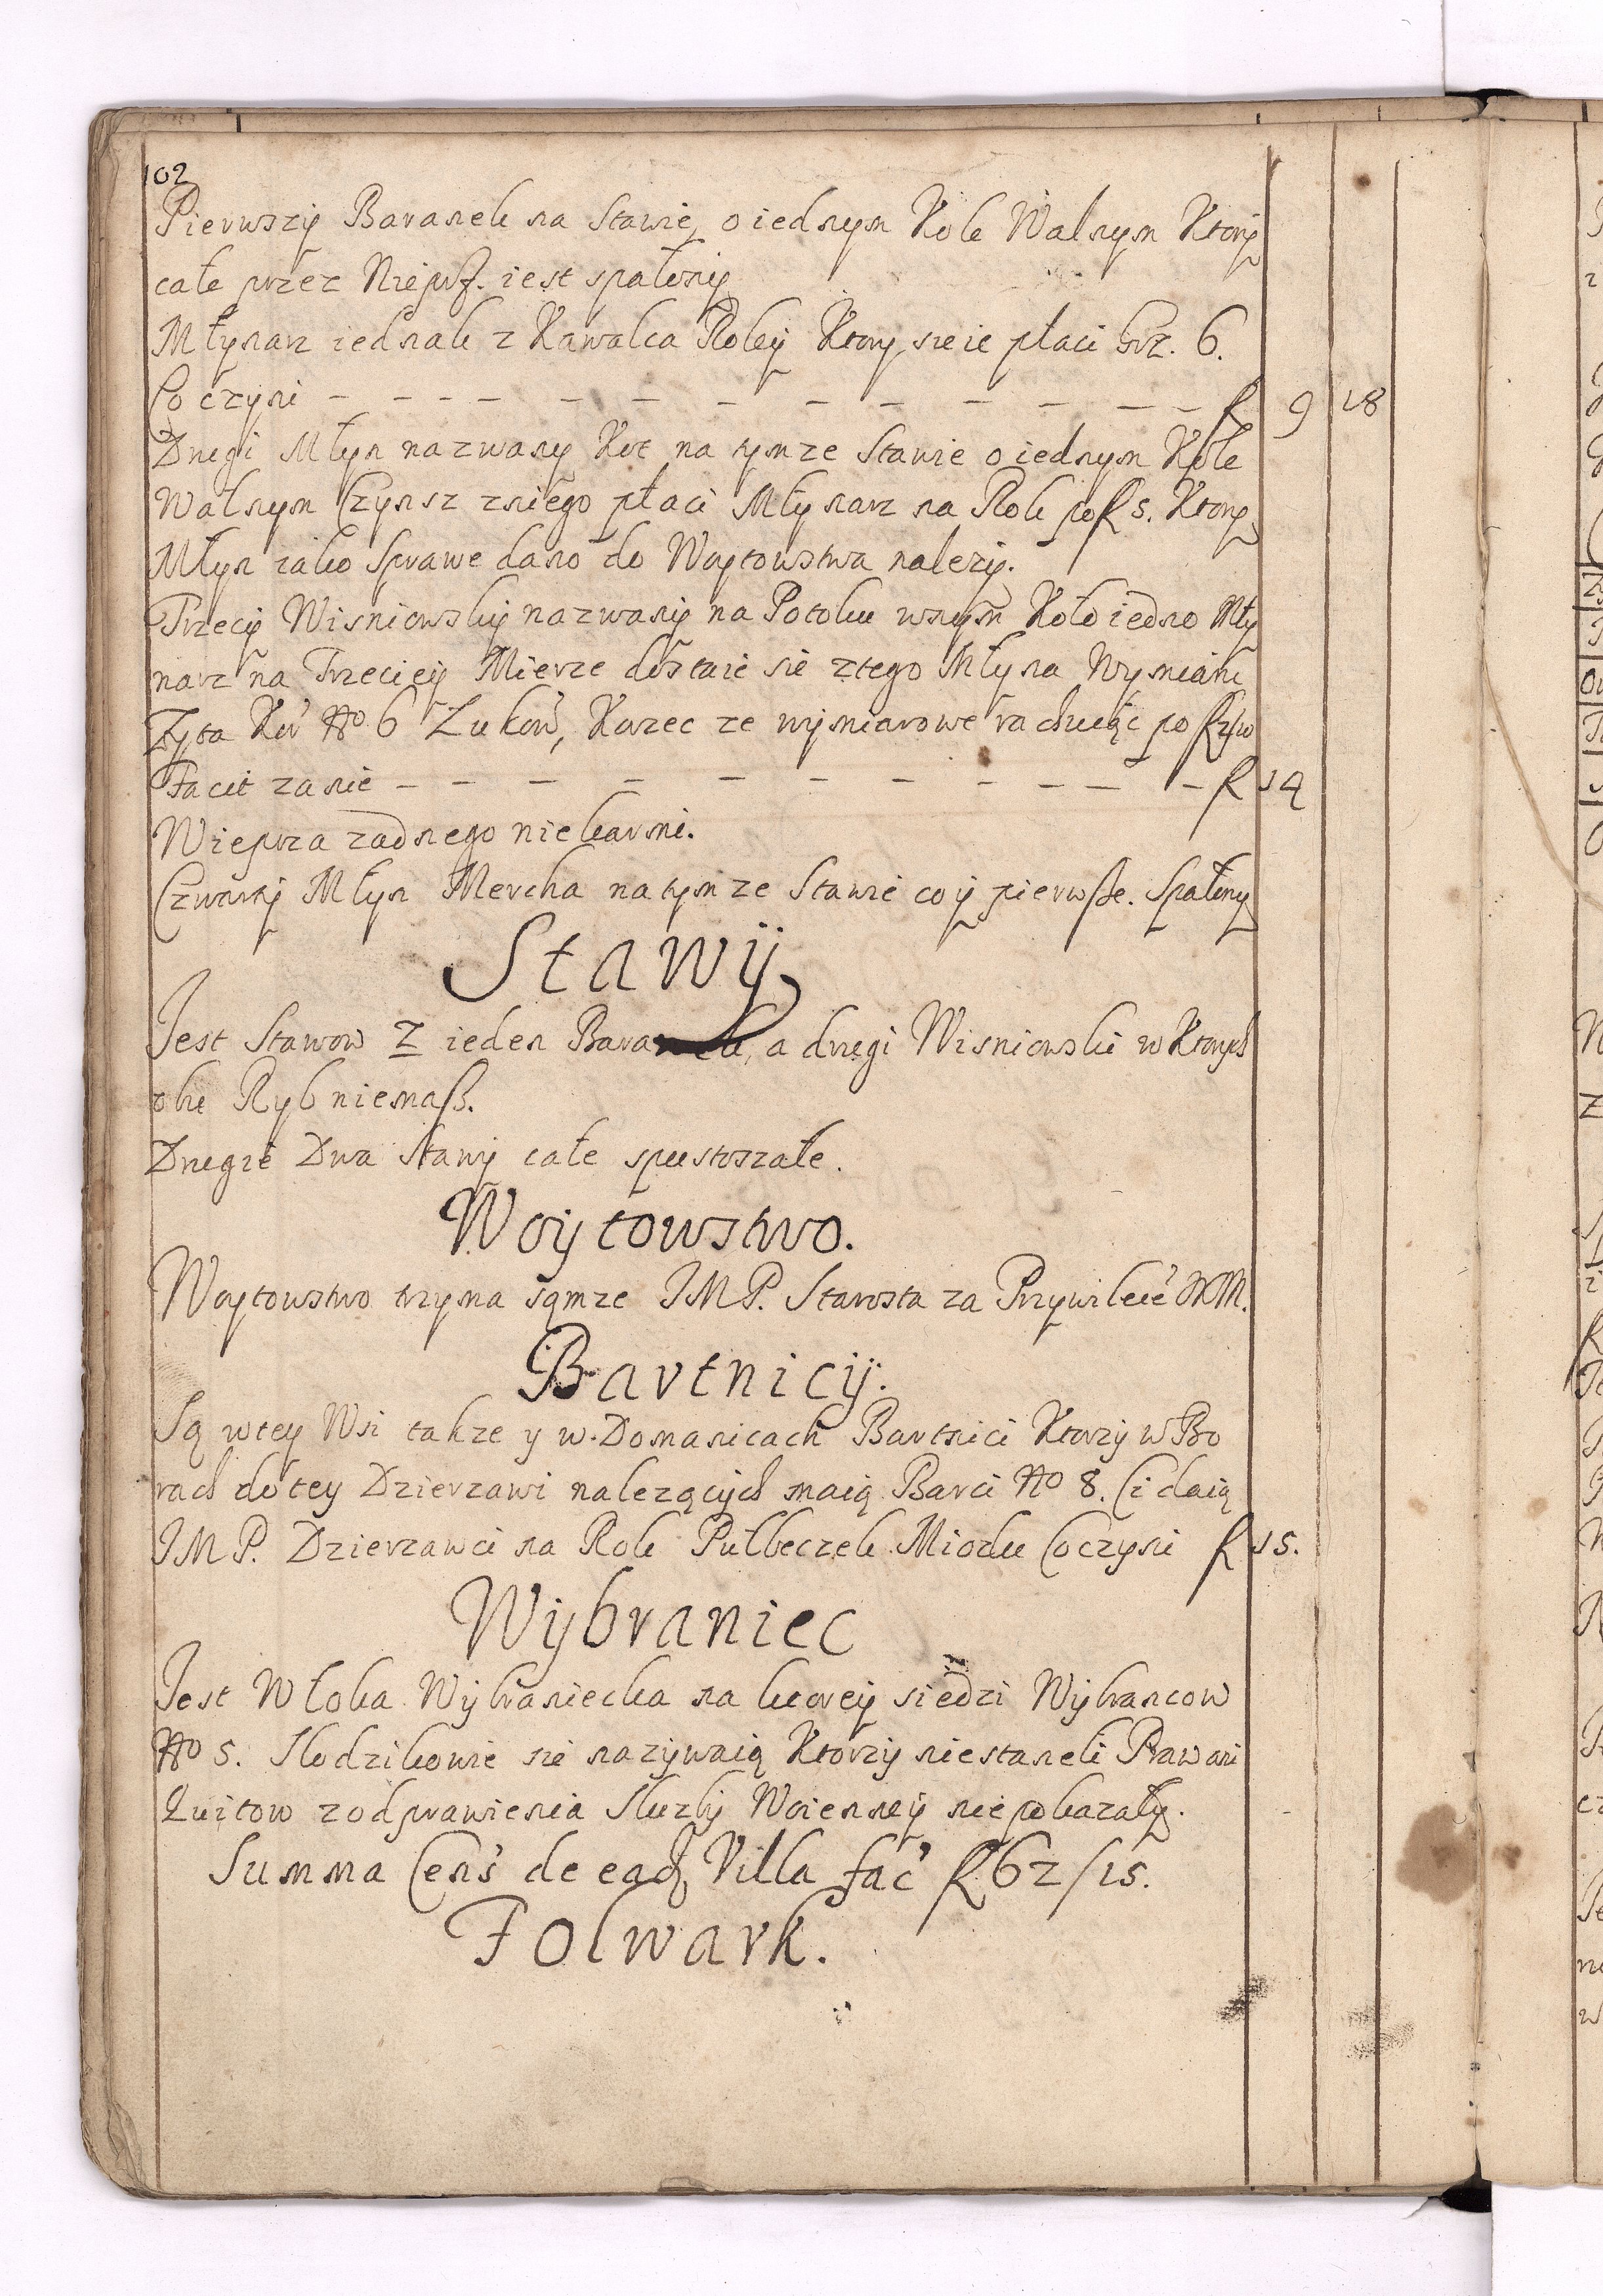 102
Pierwszy Baranek na Stawie, o iednym Kole Walnym Ktory
całe przez Niepṛ. iest spalony
Młynarz iednak z Kawalca Roley Ktory sieie płaci Grz. 6.
Co czyni - - - - - - - - - - - - - - f 9 18
Drugi Młyn nazwany Kot na tymze Stawie o iednym Kole
Walnym Czynsz zniego płaci Młynarz na Rok po f 5. Ktory
Młyn iako Sprawe dano do Woytowstwa nalezy.
Trzecy Wisniowsky nazwany na Potoku wnym Koło iedno Mły
narz na Trzeciey Mierze dostaie sie ztego Młyna Wymiaru
Zyta No 6 Łukow, Korzec ze wymiarowe rachuiąc po
Facit zanie - - - - - - - - - - - - f 14
Wieprza zadnego niekarmi.
Czwarty Młyn Mercha natymze Stawie co y pierwsze. Spalony
Stawÿ
Jest Stawow 2 ieden Baranek, a drugi Wisniowski w Ktorych
obu Ryb niemasz.
Drugie Dwa Stawy całe spustoszałe.
Woÿtowstwo.
Woytowstwo trzyma sąmze JMP. Starosta za Przywileie JKM.
Bartnicÿ.
Są wtey Wsi takze y w Domanicach Bartnici Ktorzy w Bo
rach do tey Dzierzawi nalezących maią Barci No 8. Ci daią
JMP. Dzierzawci na Rok Pułbeczek Miodu Coczyni f 15.
Wÿbraniec
Jest Włoka Wybraniecka na ktorey siedzi Wybrancow
No 5. Skodzikowie sie nazywaią Ktorzy niestaneli Praw ani
Kwitow z odprawienia Służby Woienney niepokazały.
Summa Cens' de eadꝫ Villa fac' f 62/15.
Folwark.